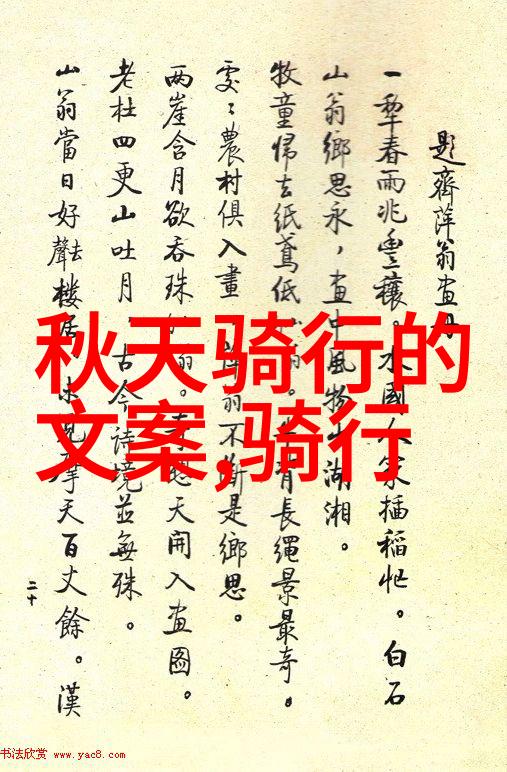 題齊萍翁画
一犁春雨兆豐穰。水國人家插稻忙。白石
山翁鄉思永,画中風物出湖湘。
牧童歸去紙鳶低 背長繩景最奇。
處〻農村俱入畫 不斷是鄉思。
兩崖含月欲吞珠 天開入画圖。
老杜四更山吐月,古今詩境並無殊。
山翁當日好去聲樓居 摩天百丈餘。漢
二十
秋天骑行的
文案,骑行
书法欣赏 www.yac8.com